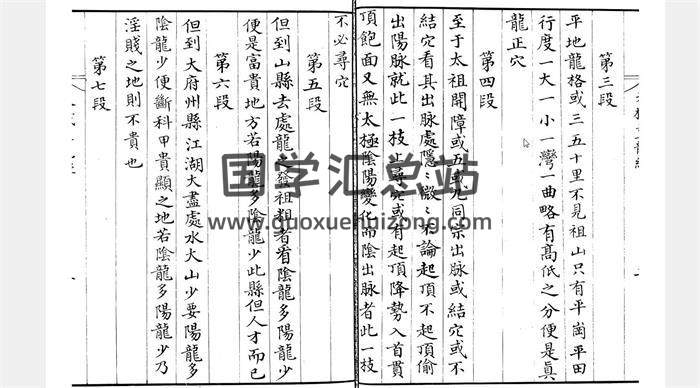 第三段
平地龍格或三五十里不見祖山只有平崗平田
行度一大一小一灣一曲略有高低之分便是真
龍正穴
第四段
至于太祖開障或五同宗出脉或結穴或不
結穴看其出脉處隱〻微〻不論起頂不起頂偷
出陽脉就此一枝上尋穴或有起頂降勢入首貫
頂飽面又無太極陰陽變化而陰出脉者此一枝
不必尋穴
第五段
但到山縣去處龍發祖粗者看陰龍多陽龍少
便是富貴地方若陽龍多陰龍少此縣但人才而已
第六段
但到大府州縣江湖大盡處水大山少要陽龍多
陰龍少便斷科甲貴顯之地若陰龍多陽龍少乃
淫賤之地則不貴也
第七段
国学汇总站
www.guoxuehuizong.com